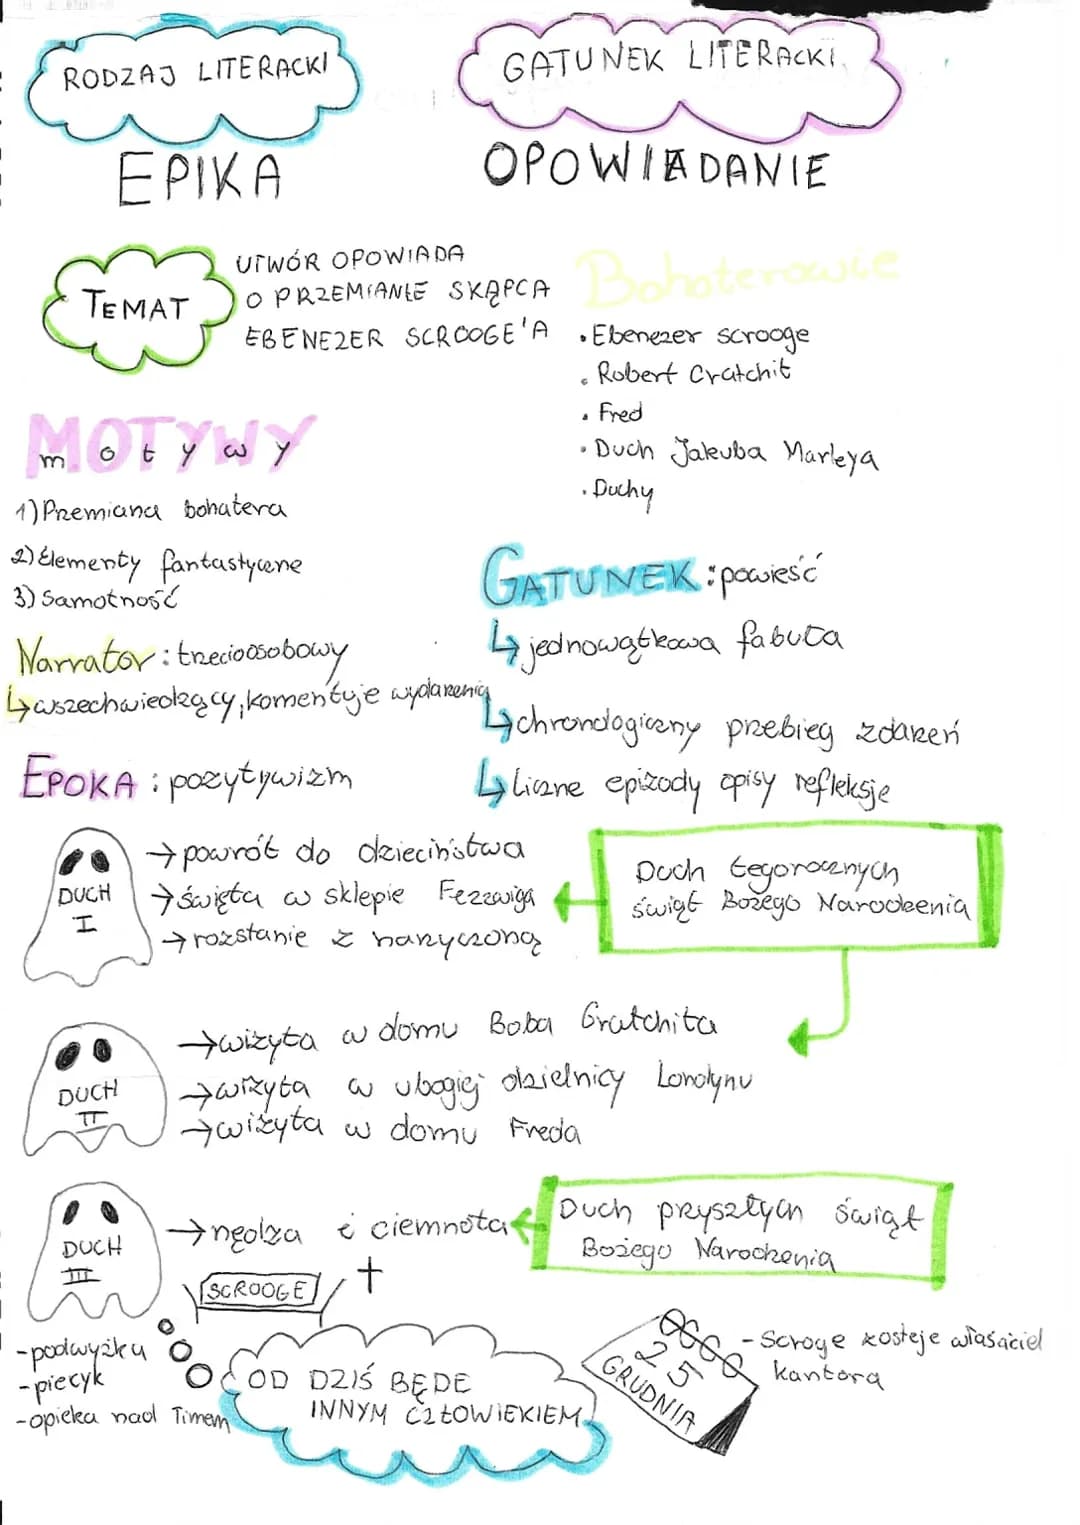 RODZAJ LITERACKI
EPIKA
GATUNEK LITERACKI
OPOWIADANIE
TEMAT
UTWÓR OPOWIADA
O PRZEMIANIE SKĄPCA
EBENEZER SCROOGE'A
Bohaterowie
• Ebenezer scrooge
• Robert Cratchit
• Fred
• Duch Jakuba Marleya
• Duchy
MOTYWY
motywy
1) Przemiana bohatera
2) Elementy fantastyczne
3) Samotność
Narrator: trzecioosobowy
↳ wszechwiedzący, komentuje wydarzenia
EPOKA: pozytywizm
GATUNEK: powieść
↳ jednowątkowa fabuła
↳ chronologiczny przebieg zdarzeń
↳ liczne epizody opisy refleksje
DUCH
I
→ powrót do dzieciństwa
→ święta w sklepie Fezzwiga
→ rozstanie z narzyczoną
Duch tegorocznych
świąt Bożego Narodzenia
DUCH
II
→ wizyta w domu Boba Cratchita
→ wizyta w ubogiej dzielnicy Londynu
→ wizyta w domu Freda
DUCH
III
→ nędza i ciemnota
Duch przyszłych świąt
Bożego Narodzenia
SCROOGE
- podwyżka
- piecyk
- opieka nad Timem
OD DZIŚ BĘDE
INNYM CZŁOWIEKIEM
25
GRUDNIA
- Scroge zosteje właściciel
kantora